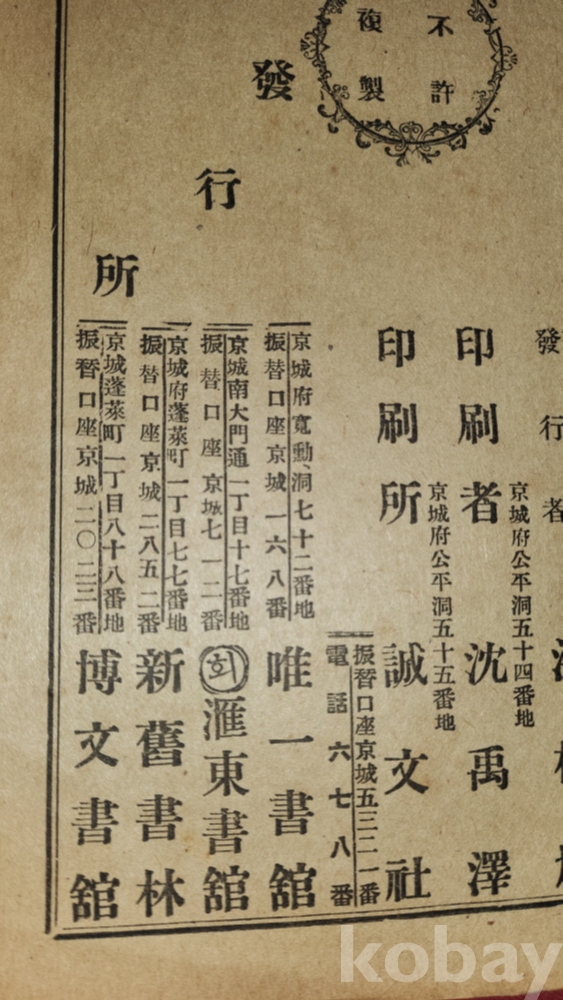 不許
複製
發行者
京城府公平洞五十四番地
印刷者 沈禹澤
京城府公平洞五十五番地
印刷所 誠文社
振替口座京城五三二一番
電話六七八番
發行所
京城府寬勳洞七十二番地
振替口座京城一六八番
唯一書舘
京城南大門通一丁目十七番地
振替口座京城七一二番
회 滙東書舘
京城府蓬萊町一丁目七七番地
振替口座京城二八五二番
新舊書林
京城蓬萊町一丁目八十八番地
振替口座京城二〇二三番
博文書舘
kobay